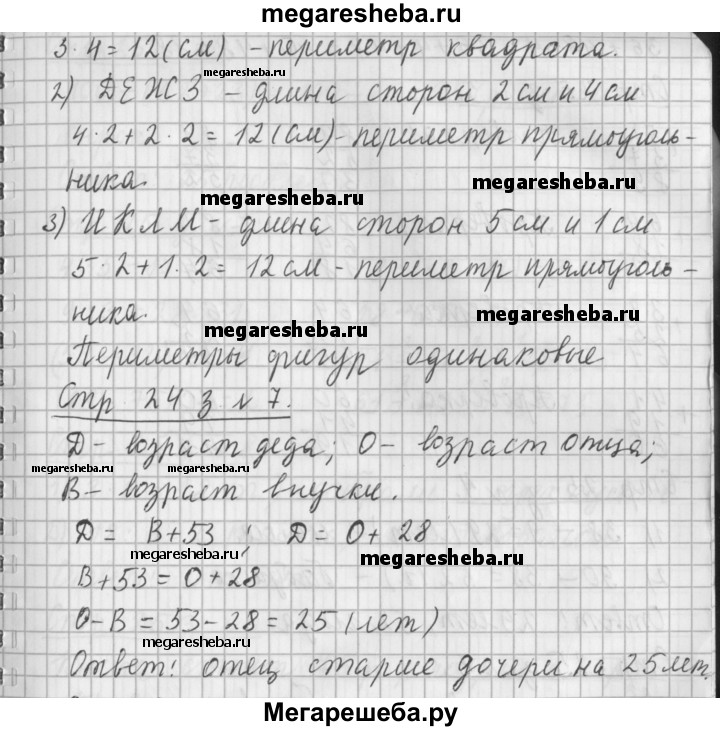 megaresheba.ru
3·4=12(см) - периметр квадрата.
megaresheba.ru
2) ДЕЖЗ - длина сторон 2см и 4см
4·2+2·2=12(см)-периметр прямоуголь-
ника.
megaresheba.ru
megaresheba.ru
3) ИКЛМ - длина сторон 5см и 1см
5·2+1·2=12см-периметр прямоуголь-
ника.
megaresheba.ru
megaresheba.ru
Периметры фигур одинаковые
Стр 24 з №7.
Д- возраст деда; О- возраст отца;
megaresheba.ru
megaresheba.ru
megaresheba.ru
В- возраст внучки.
Д= В+53; Д=О+28
megaresheba.ru
megaresheba.ru
В+53=О+28
О-В=53-28=25(лет)
megaresheba.ru
Ответ: отец старше дочери на 25лет.
Мегарешеба.ру